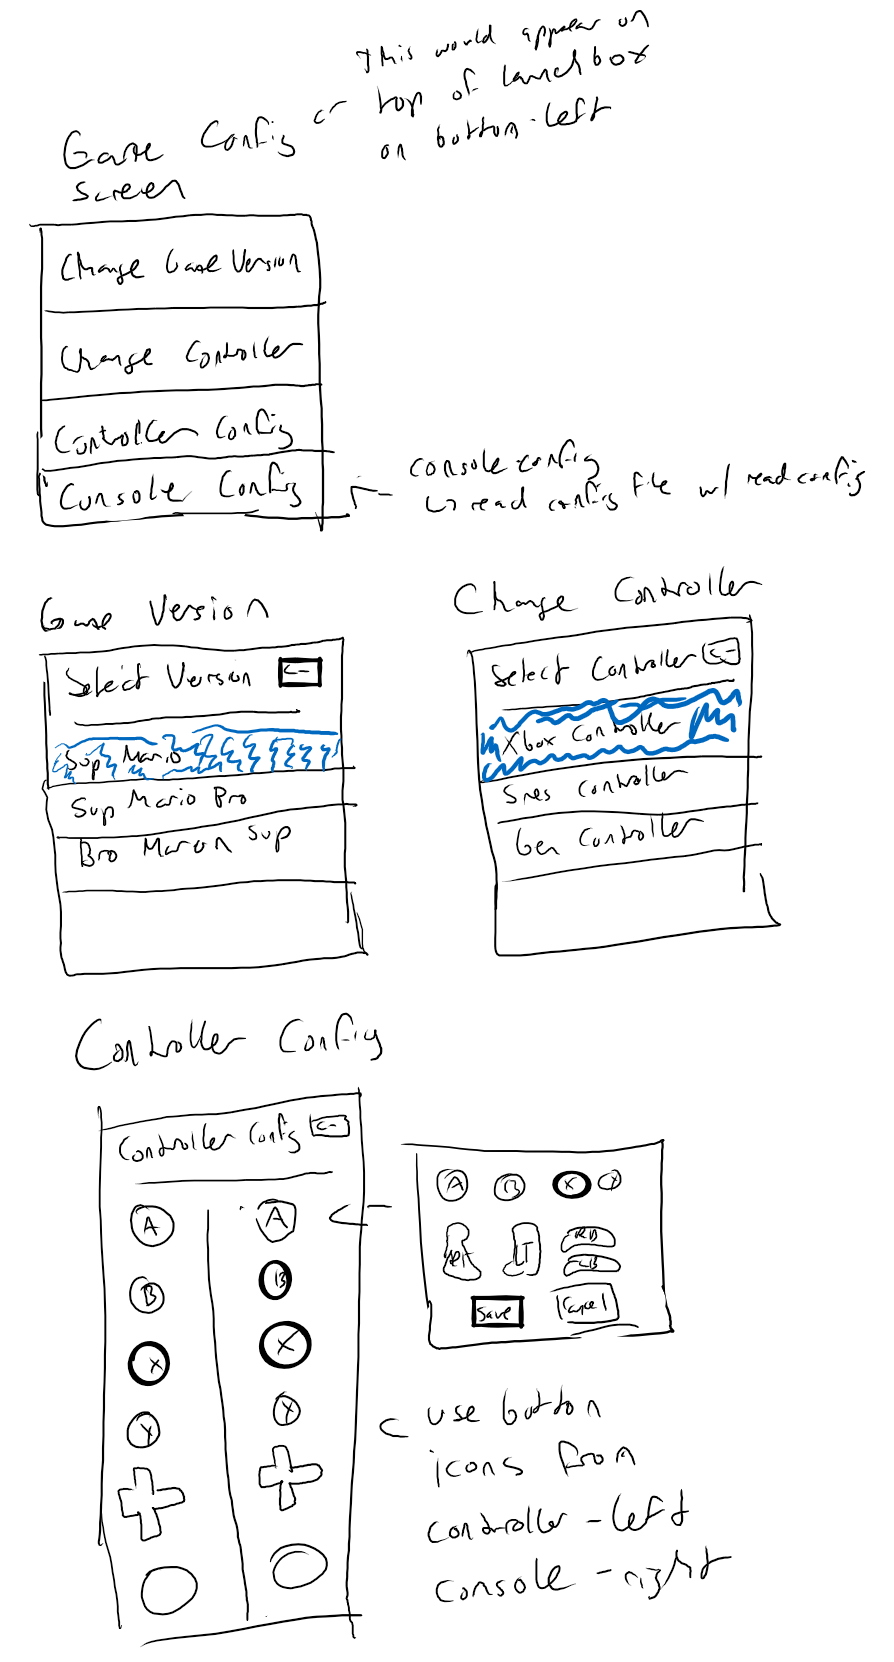 This would appear on
top of launchbox
on bottom-left
Game Config
Screen
Change Game Version
Change Controller
Controller Config
Console Config
console config
↳ read config file w/ readconfig
Game Version
Select Version <-
Sup Mario
Sup Mario Bro
Bro Maron Sup
Change Controller
Select Controller <-
Xbox Controller
Snes Controller
Gen Controller
Controller Config
Controller Config <-
A A
B B
X X
Y Y
A B X Y
LT RB
LB
Save Cancel
use button
icons from
controller - left
console - right